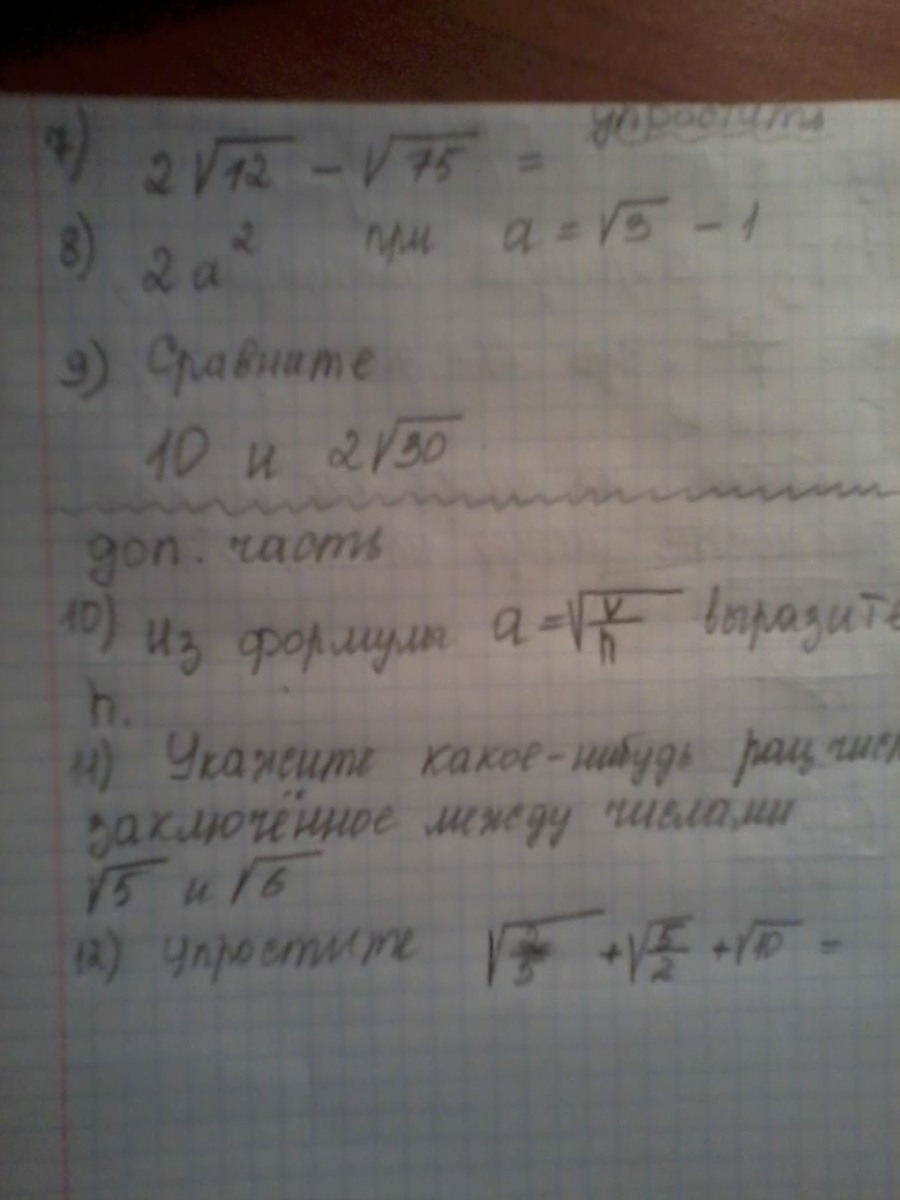 упростить
7) 2√12 - √75 =
8) 2a² при a = √3 - 1
9) Сравните
10 и 2√30
доп. часть
10) Из формулы a = √(v/h) выразить
h.
11) Укажите какое-нибудь рац
заключённое между числами
√5 и √6
12) упростите + √(5/2) + √10 =